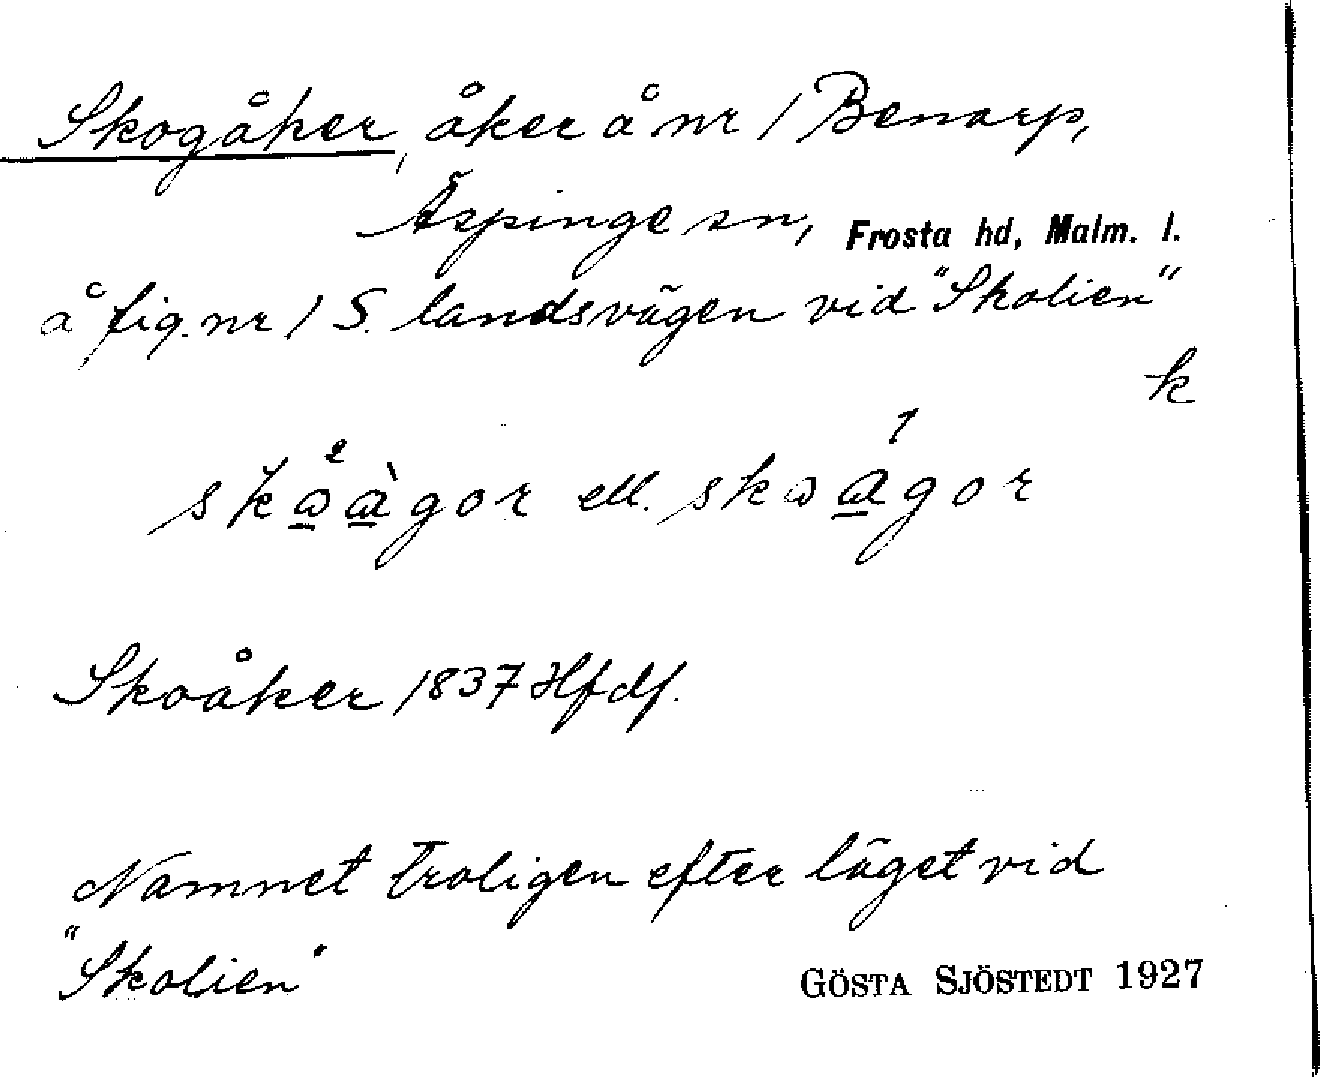 Skogåker, åker å nr 1 Benarp,
Äspinge sn, Frosta hd, Malm. l.
å fig. nr 1 S. landsvägen vid "Skolien"
k
skɷ²ɑ̀gor ell. skɷɑ¹gor
Skoåker 1837 Hfdf.
Namnet troligen efter läget vid
"Skolien"
GÖSTA SJÖSTEDT 1927